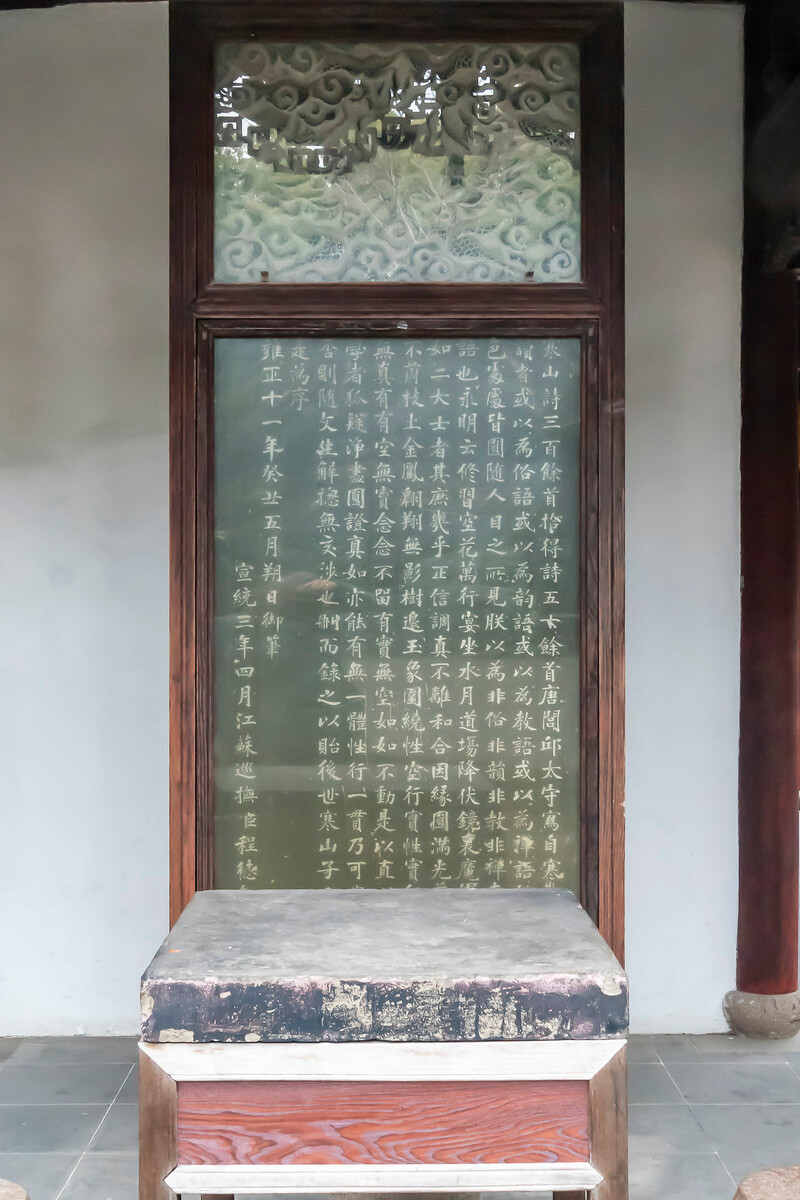 寒山詩三百餘首拾得詩五十餘首唐閭邱太守寫自寒
讀者或以為俗語或以為韵語或以為教語或以為禪語
色處處皆圓随人目之所見朕以為非俗非韻非教非禪
語也永明云修習空花萬行宴坐水月道場降伏鏡裏魔
如二大士者其庶幾乎正信調真不離和合因緣圓滿光
不萌枝上金鳳翱翔無影樹邊玉象圍繞性空行實性實
無真有有空無實念念不留有實無空如如不動是以直
學者狐疑淨盡圓證真如亦能有無一體性行一貫乃可
否則随文生解揔無交涉也刪而錄之以貽後世寒山子
是為序
雍正十一年癸丑五月朔日御筆
宣統三年四月江蘇巡撫臣程德